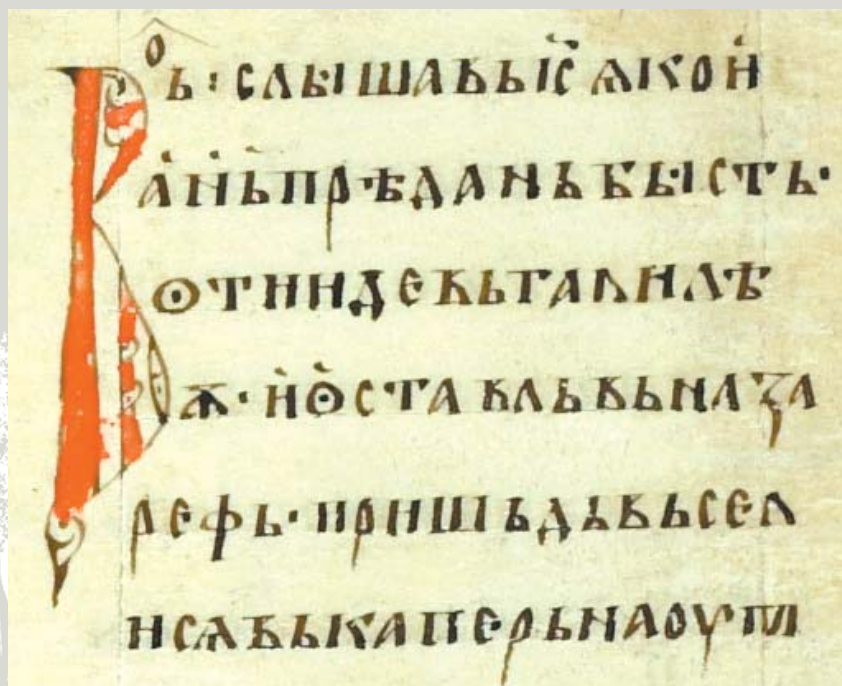 Воь : слышавьі҃с ѧкои
аньпрѣданьбысть·
ѻтиидевьгалилѣ
ѫ·иѻставльвьназа
рефь·пришьдьвьсел
исѧвькаперьнаоум